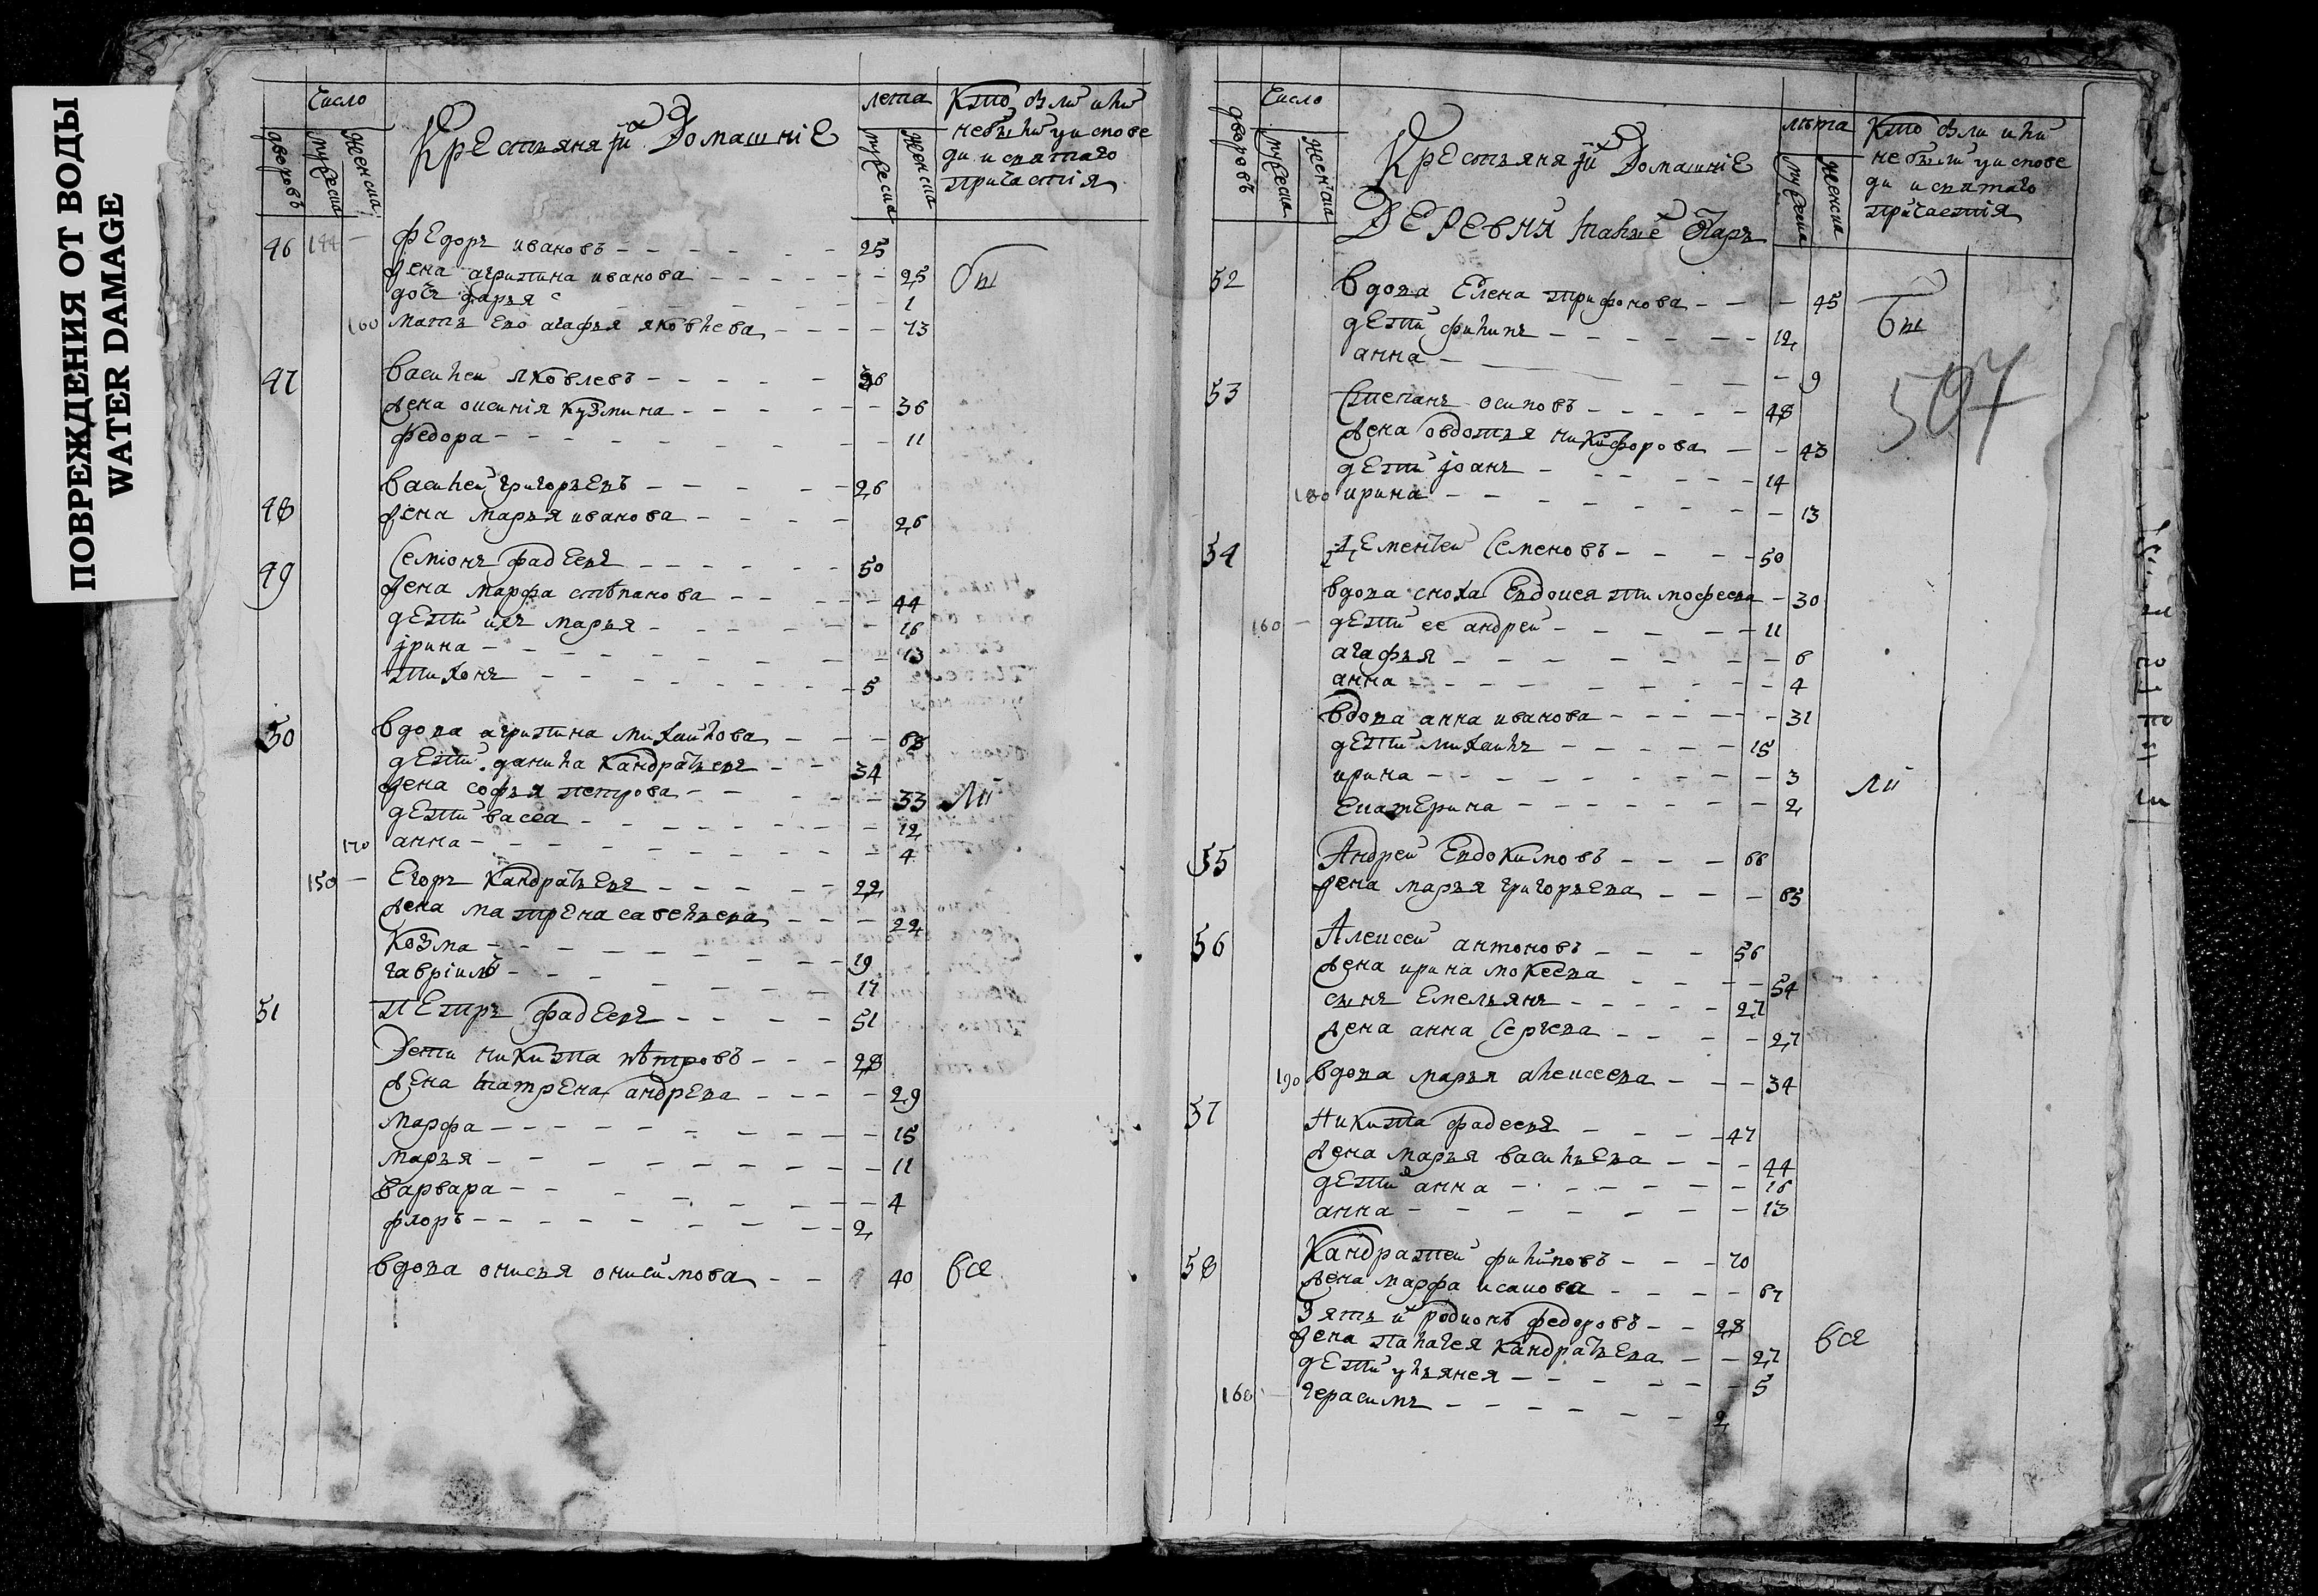 ПОВРЕЖДЕНИЯ ОТ ВОДЫ
WATER DAMAGE
Число
дворовъ
мужеска
женска
Крестьяня и Домашніе
лета
мужеска
женска
Кто были или
небыли у испове
ди и святаго
причастія
46 144 Федоръ ивановъ 25
жена агрипина иванова 25 бы
дочь дарья 1
160 мать ево агафья яковлева 73
47 василей яковлевъ 36
жена ксенія кузмина 36
федора 11
василей григорьевъ 26
48 жена марья иванова 26
49 семіонъ фадеевъ 50
жена марфа степанова 44
дети ихъ марья 16
ірина 13
тихонъ 5
50 вдова агрипина михаилова 68
дети данила кандратьевъ 34
жена софья петрова 33 ли
дети васса 12
170 анна 4
150 Егоръ кандратьевъ 22
жена матрена савельева 22
козма 19
гавріилъ 17
51 петръ фадеевъ 51
дети никита петровъ 28
жена матрена андрева 29
марфа 15
марья 11
варвара 4
флоръ 2
вдова онисья онисимова 40 все
Число
дворовъ
мужеска
женска
Крестьяня и Домашніе
лѣта
мужеска
женска
Кто были или
небыли у испове
ди и святаго
причастія
Деревня
52 вдова Елена трифонова 45 бы
дети филипъ 12
анна 9
507
53 степанъ осиповъ 48
жена овдотья никифорова 43
дети іоанъ 14
180 ирина 13
54 Дементей семеновъ 50
вдова сноха Евдокея тимофеева 30
160 дети ее андрей 11
агафья 6
анна 4
вдова анна иванова 31
дети михаилъ 15
ирина 3 ли
екатерина 2
55 Андрей Евдокимовъ 66
жена марья григорьева 63
56 Алексей антоновъ 56
жена ирина мокеева 54
сынъ Емельянъ 27
жена анна сергева 27
190 вдова марья алексеева 34
57 Никита фадеевъ 47
жена марья васильева 44
дети анна 16
анна 13
58 Кандратей филиповъ 70
жена марфа исакова 67
зять и родионъ федоровъ 28
жена палагея кандратьева 27 все
дети ульянея 5
168 герасимъ 2